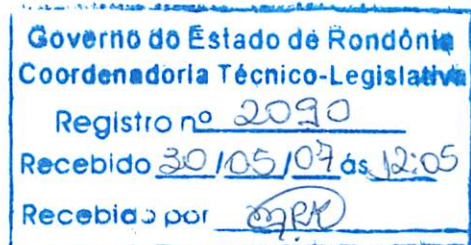 Governo do Estado de Rondônia
Coordenadoria Técnico-Legislativa
Registro nº 2090
Recebido 30/05/07 ás 12:05
Recebido por